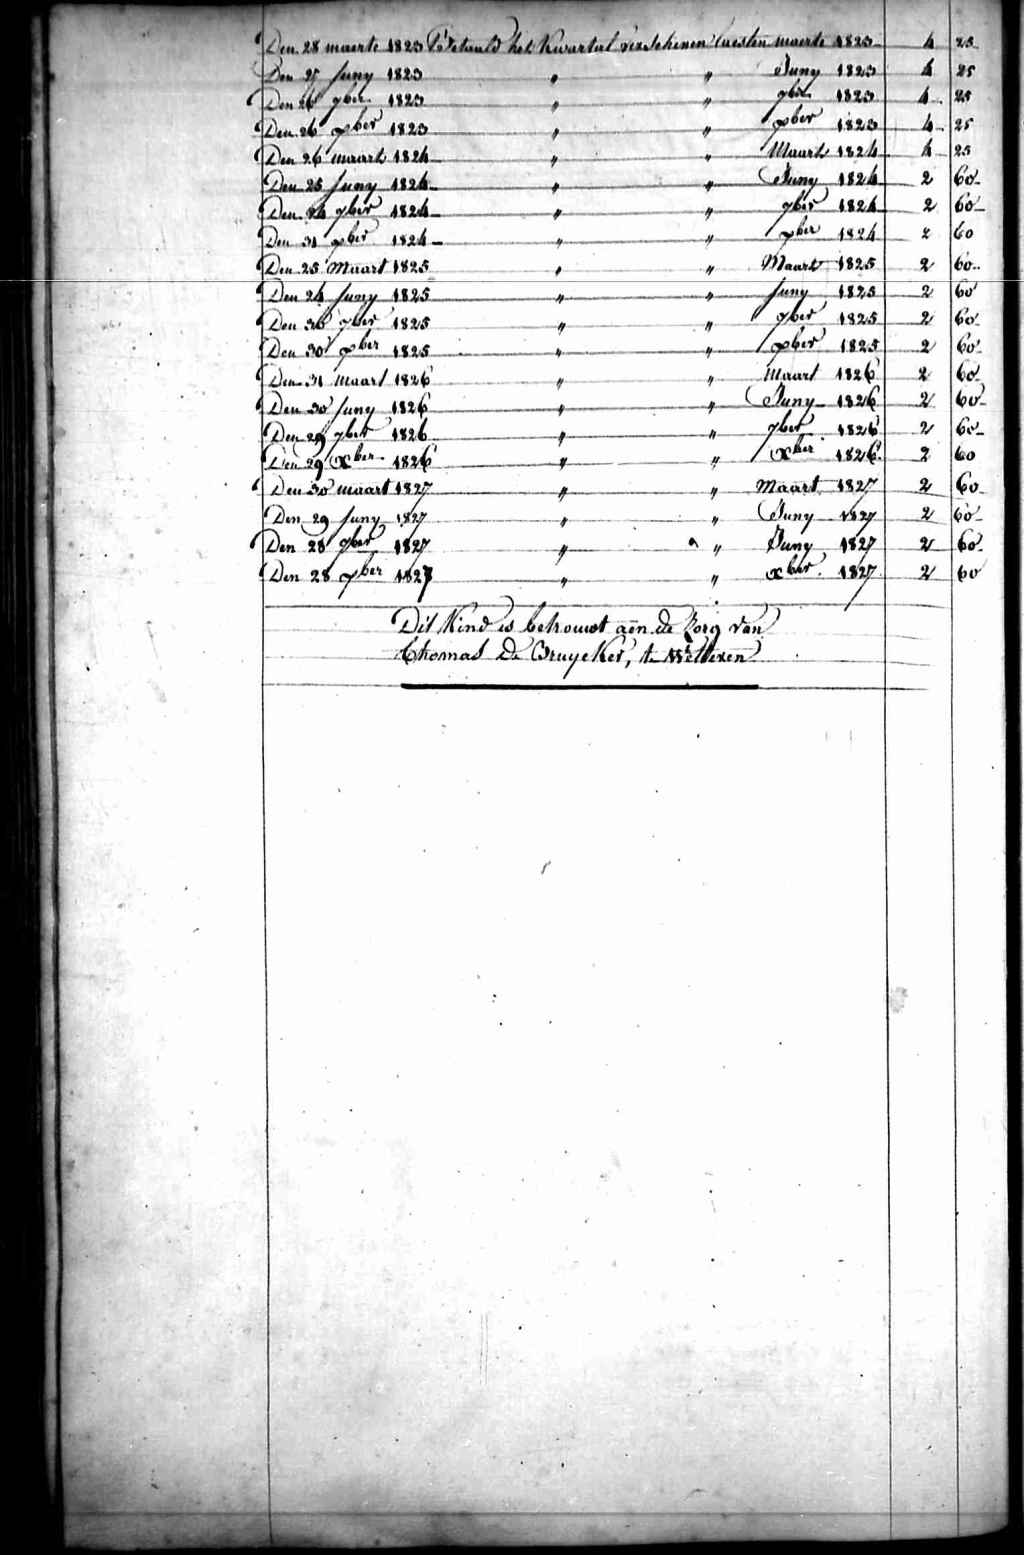 Den 28 maerte 1823 Betaald het kwartal verschenen laesten maerte 1823 4 25
Den 27 Juny 1823 " " Juny 1823 4 25
Den 26 7ber 1823 " " 7ber 1823 4 25
Den 26 xber 1823 " " xber 1823 4 25
Den 26 maart 1824 " " Maart 1824 4 25
Den 25 Juny 1824 " " Juny 1824 2 60
Den 24 7ber 1824 " " 7ber 1824 2 60
Den 31 xber 1824 " " xber 1824 2 60
Den 25 Maart 1825 " " Maart 1825 2 60
Den 24 Juny 1825 " " Juny 1825 2 60
Den 30 7ber 1825 " " 7ber 1825 2 60
Den 30 xber 1825 " " xber 1825 2 60
Den 31 maart 1826 " " Maart 1826 2 60
Den 30 Juny 1826 " " Juny 1826 2 60
Den 29 7ber 1826 " " 7ber 1826 2 60
Den 29 xber 1826 " " xber 1826 2 60
Den 30 maart 1827 " " Maart 1827 2 60
Den 29 Juny 1827 " " Juny 1827 2 60
Den 28 7ber 1827 " " Juny 1827 2 60
Den 28 xber 1827 " " xber 1827 2 60
Dit Kind is betrouwt aen de Zorg van
Thomas De Bruyeker, te Wetteren